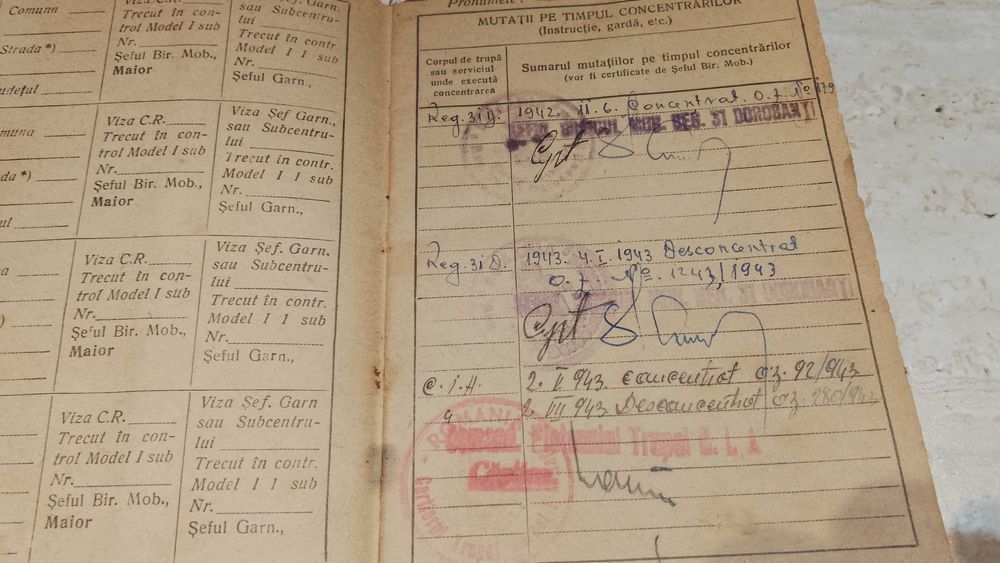 Comuna
Strada *)
udețul
Viza C.R.
Trecut în con-
trol Model I sub
Nr.
Șeful Bir. Mob.,
Maior
sau Subcentru-
Trecut în contr.
Model I 1 sub
Nr.
Șeful Garn.,
muna
ada *)
ul
Viza C.R.
Trecut în con-
trol Model I sub
Nr.
Șeful Bir. Mob.,
Maior
Viza Șef Garn.,
sau Subcentru-
lui
Trecut în contr.
Model I 1 sub
Nr.
Șeful Garn.,
na
*)
Viza C.R.
Trecut în con-
trol Model I sub
Nr.
Șeful Bir. Mob.,
Maior
Viza Șef. Garn.
sau Subcentru-
lui
Trecut în contr.
Model I 1 sub
Nr.
Șeful Garn.,
Viza C.R.
Trecut în con-
trol Model I sub
Nr.
Șeful Bir. Mob.,
Maior
Viza Șef. Garn
sau Subcentru-
lui
Trecut în contr.
Model I 1 sub
Nr.
Șeful Garn.,
Pronumele :
MUTAȚII PE TIMPUL CONCENTRĂRILOR
(Instrucție, gardă, etc.)
Corpul de trupă
sau serviciul
unde execută
concentrarea
Sumarul mutațiilor pe timpul concentrărilor
(vor fi certificate de Șeful Bir. Mob.)
Reg. 31 D. 1942. 11. 6. Concentrat. O. z. No 179
MOB. REG. 31 DOROBANȚI
Cpt
Reg. 31 D. 1943. 4. I. 1943 Desconcentrat
O. z. No. 1243/1943
REG. 31 DOROBANȚI
Cpt
C. I. A. 2. V 943. concentrat oz. 92/943.
2 VII 943. Desconcentrat oz. 280/943
ROMANI
Trupei C. I. A
Cartierul Trupei